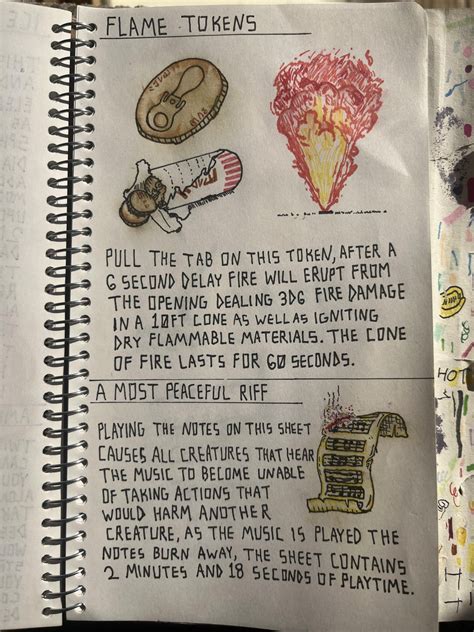 FLAME TOKENS
PULL THE TAB ON THIS TOKEN, AFTER A
6 SECOND DELAY FIRE WILL ERUPT FROM
THE OPENING DEALING 3D6 FIRE DAMAGE
IN A 10FT CONE AS WELL AS IGNITING
DRY FLAMMABLE MATERIALS. THE CONE
OF FIRE LASTS FOR 60 SECONDS.
A MOST PEACEFUL RIFF
PLAYING THE NOTES ON THIS SHEET
CAUSES ALL CREATURES THAT HEAR
THE MUSIC TO BECOME UNABLE
OF TAKING ACTIONS THAT
WOULD HARM ANOTHER
CREATURE, AS THE MUSIC IS PLAYED THE
NOTES BURN AWAY, THE SHEET CONTAINS
2 MINUTES AND 18 SECONDS OF PLAYTIME.
HOT